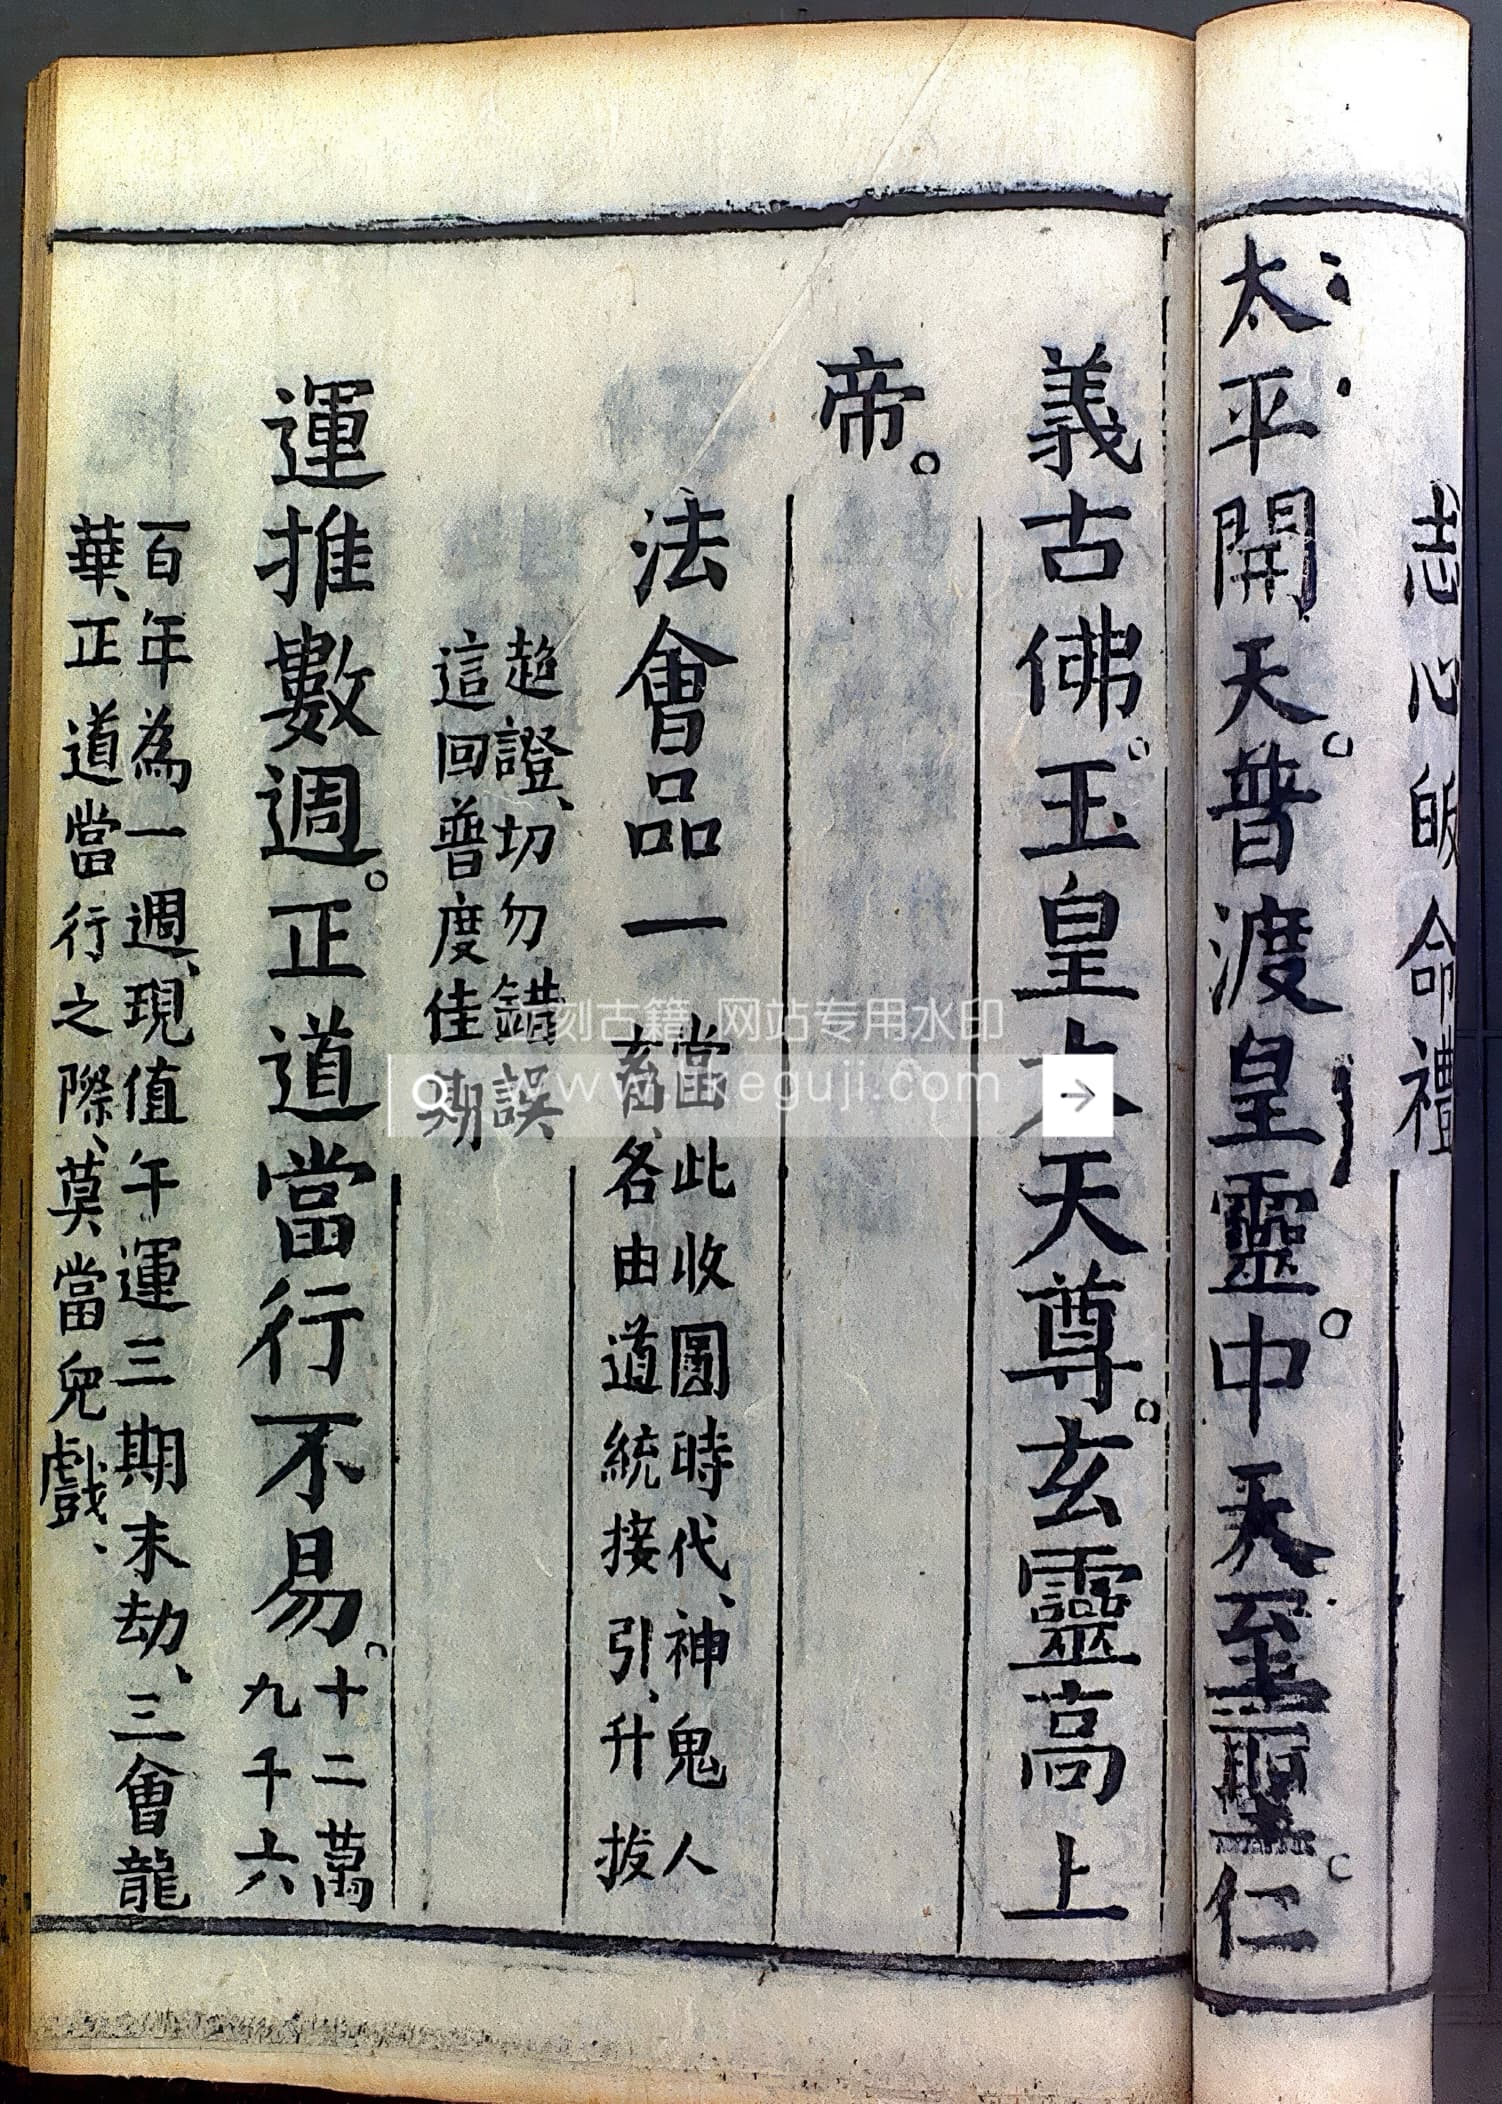 志心皈命禮
太平開天。普渡皇靈。中天至聖。仁
義古佛。玉皇大天尊。玄靈高上
帝。
法會品一
當此收圓時代、神鬼人
畜、各由道統接引、升拔
超證、切勿錯誤
這回普度佳期
運推數週。正道當行不易。
十二萬
九千六
百年為一週、現值午運三期末劫、三會龍
華、正道當行之際、莫當兒戲、
刻古籍 网站专用水印
www.keguji.com